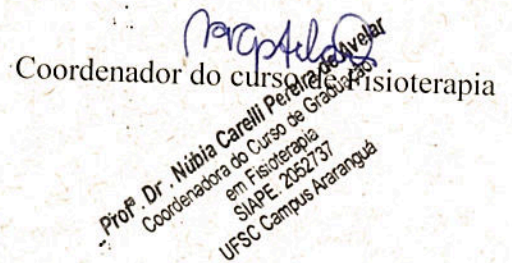 Coordenador do curso de Fisioterapia
Profª. Dr . Núbia Carelli Pereira de Avelar
Coordenadora do Curso de Graduação
em Fisioterapia
SIAPE. 2052737
UFSC Campus Araranguá